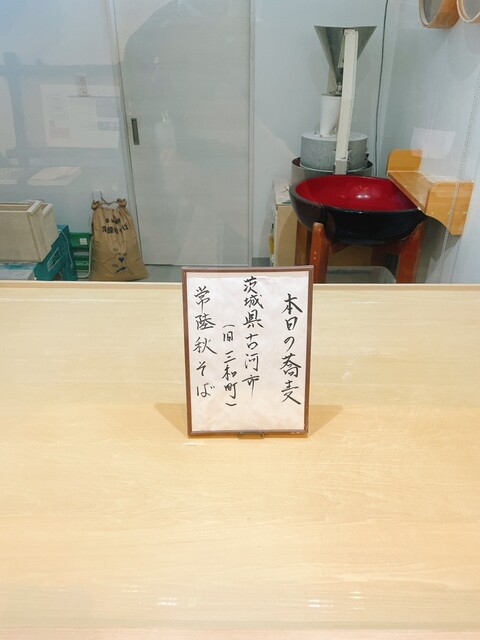 本日の蕎麦
茨城県古河市
(旧 三和町)
常陸秋そば